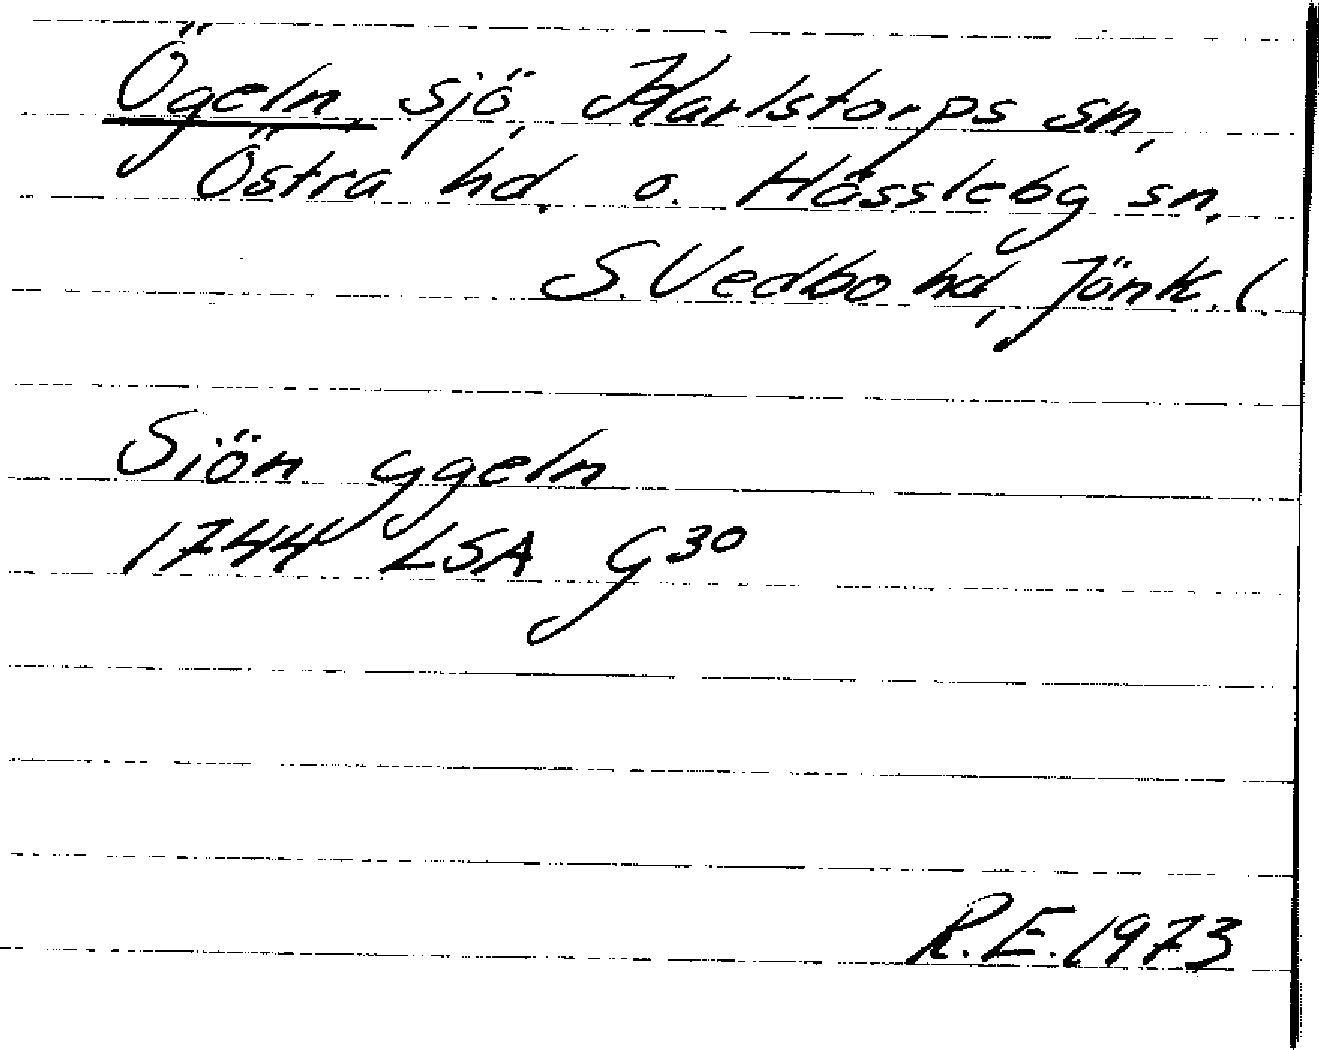 Ögeln, sjö, Karlstorps sn,
Östra hd, o. Hässleby sn,
S. Vedbo hd, Jönk. l.
Siön ygeln
1744 LSA G30
R.E. 1973